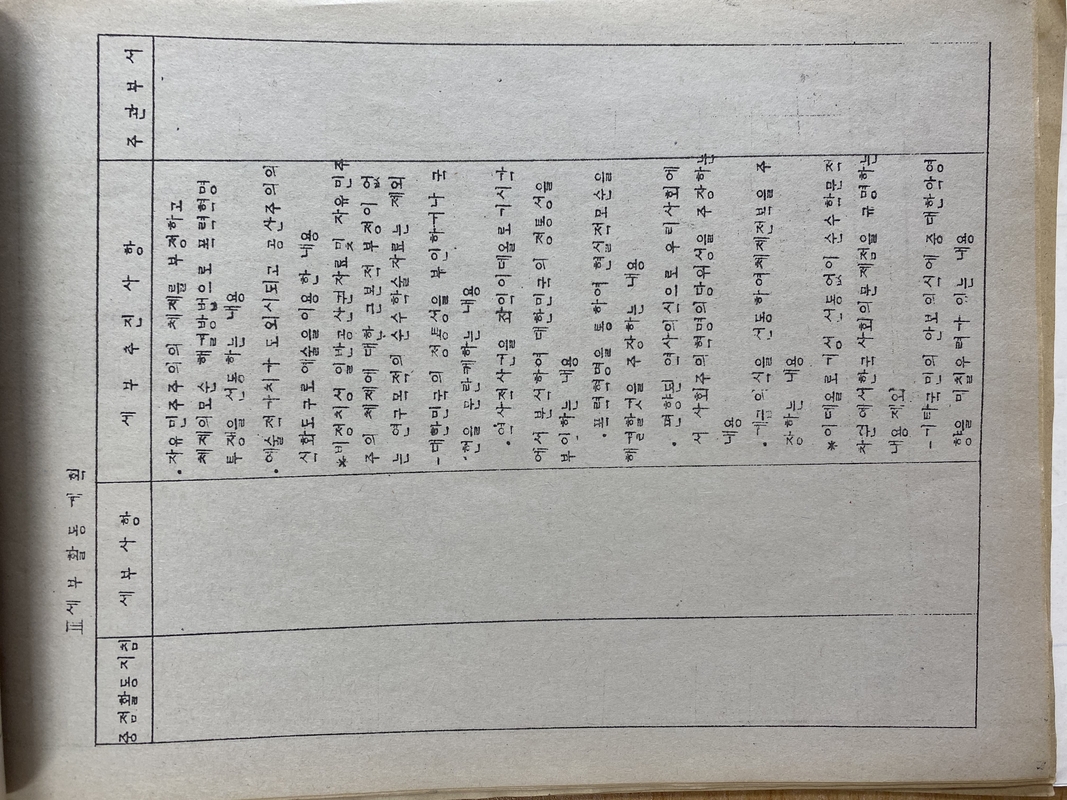 Ⅱ 세부 활동 계획
중점활동지침 세부사항 세부추진사항 주관부서
• 자유민주주의의 체제를 부정하고
체제의모순 해결방법으로 폭력혁명
투쟁을 선동하는 내용
• 예술적가치가 도외시되고 공산주의의
식화도구로 예술을 이용한 내용
*비정치성 일반공산권자료및 자유민주
주의 체제에 대한 근본적 부정이 없
는 연구목적의 순수학술자료는 제외
- 대한민국의 정통성을 부인하거나 국
헌을 문란케하는 내용
• 역사적사건을 좌익이데올로기시각
에서 분석하여 대한민국의 정통성을
부인하는 내용
• 폭력혁명을 통하여 현실적모순을
해결할것을 주장하는 내용
• 편향된 역사의식으로 우리사회에
서 사회주의혁명의당위성을 주장하는
내용
• 계급의식을 선동하여체제전복을 주
장하는 내용
*이데올로기성 선동없이 순수학문적
차원에서한국사회의문제점을 규명하는
내용 제외
- 기타국민의 안보의식에 중대한악영
향을 미칠우려가 있는 내용